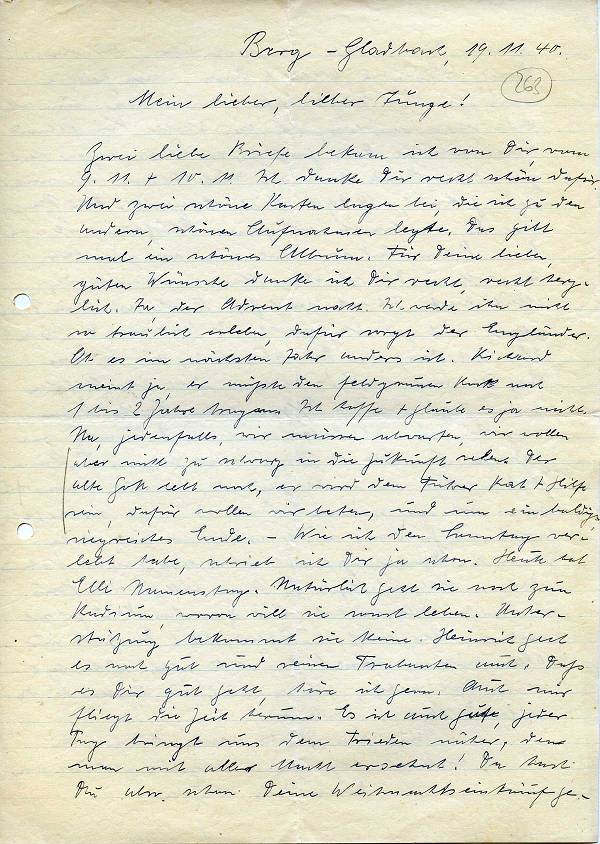 Berg-Gladbach, 19.11.40.
263
Mein lieber, lieber Junge!
Zwei liebe Briefe bekam ich von Dir, vom
9.11. + 10.11. Ich danke Dir recht schön dafür.
Und zwei schöne Karten lagen bei, die ich zu den
andern, schönen Aufnahmen legte. Das gibt
mal ein schönes Album. Für Deine lieben,
guten Wünsche danke ich Dir recht, recht herz-
lich. Ja, der Advent naht. Ich werde ihn nicht
so traulich erleben, dafür sorgt der Engländer.
Ob es im nächsten Jahr anders ist. Richard
meint ja, er müsste den feldgrauen Rock noch
1 bis 2 Jahre tragen. Ich hoffe + glaube es ja nicht.
Na, jedenfalls, wir müssen abwarten, wir wollen
aber nicht zu schwarz in die Zukunft sehen. Der
alte Gott lebt noch, er wird dem Führer Rat + Hilfe
sein, dafür wollen wir beten, und um ein baldiges,
siegreiches Ende. – Wie ich den Sonntag ver-
lebt habe, schrieb ich Dir ja schon. Heute hat
Elli Namenstag. Natürlich geht sie noch zum
, wovon will sie sonst leben. Unter-
stützung bekommt sie keine. Heinrich geht
es noch gut und seinen Trabanten auch. Dass
es Dir gut geht, höre ich gern. Auch mir
fliegt die Zeit herum. Es ist auch gut, jeder
Tag bringt uns dem Frieden näher, den
man mit aller Macht ersehnt! Du hast
Du aber schon Deine Weihnachtseinkäufe ge-